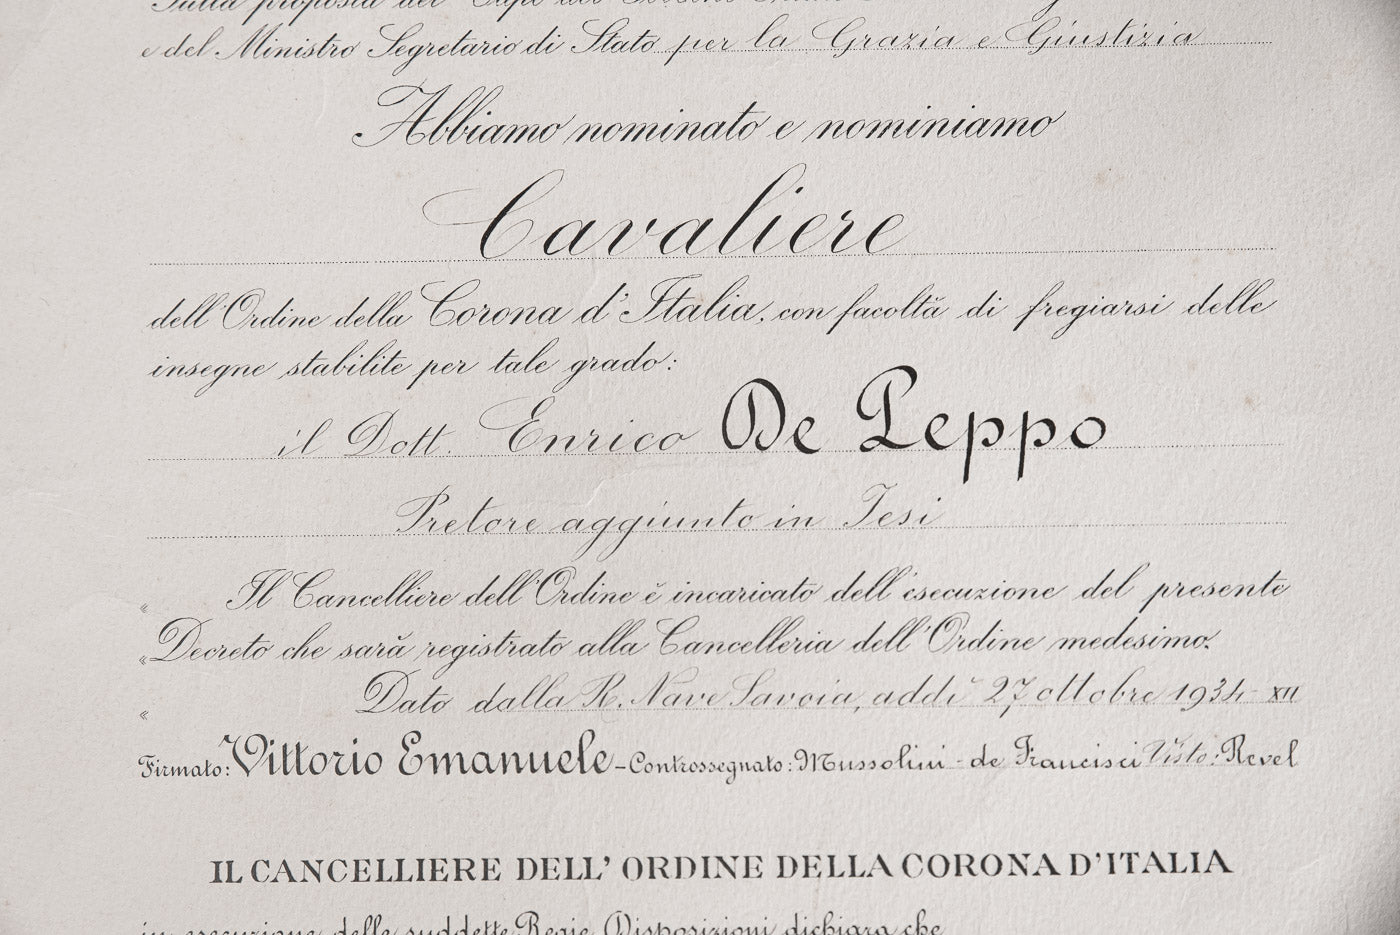 Sulla proposta del Capo del
e del Ministro Segretario di Stato per la Grazia e Giustizia
Abbiamo nominato e nominiamo
Cavaliere
dell'Ordine della Corona d'Italia, con facoltà di fregiarsi delle
insegne stabilite per tale grado:
il Dott. Enrico De Peppo
Pretore aggiunto in Jesi
« Il Cancelliere dell'Ordine è incaricato dell'esecuzione del presente
« Decreto che sarà registrato alla Cancelleria dell'Ordine medesimo.
« Dato dalla R. Nave Savoia, addì 27 ottobre 1934-XII
Firmato: Vittorio Emanuele - Controssegnato: Mussolini - de Francisci Visto: Revel
IL CANCELLIERE DELL'ORDINE DELLA CORONA D'ITALIA
in esecuzione delle suddette Regie Disposizioni dichiara che